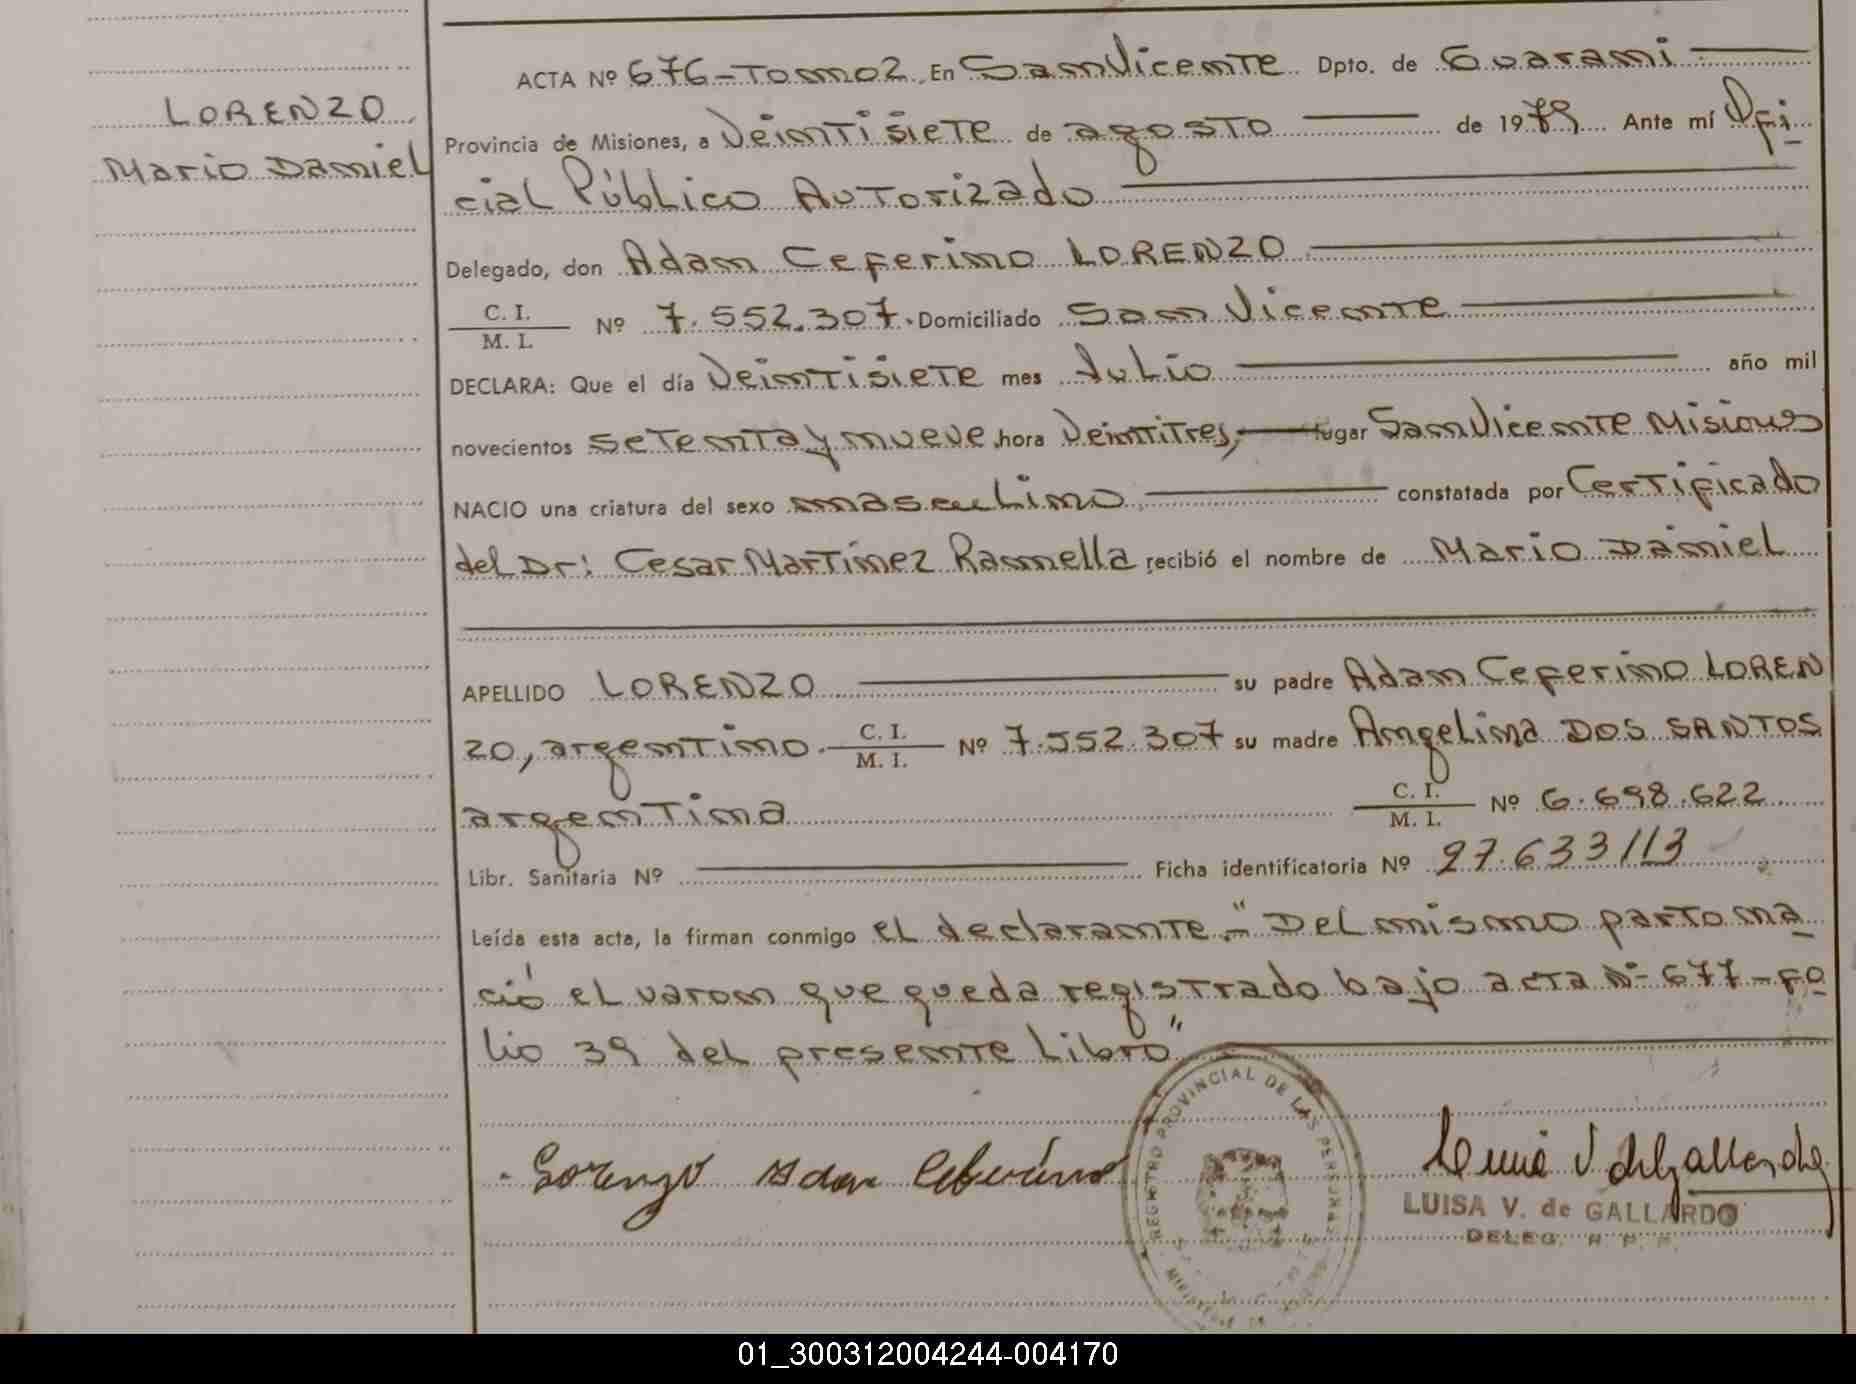 LORENZO
Mario Daniel
ACTA Nº 676 - Tomo 2. En San Vicente Dpto. de Guarani
Provincia de Misiones, a Veintisiete de agosto de 1979 Ante mí Ofi
cial Público Autorizado
Delegado, don Adam Ceferino LORENZO
C. I.
M. I. Nº 7.552.307. Domiciliado San Vicente
DECLARA: Que el día Veintisiete mes Julio año mil
novecientos setenta y nueve hora Veintitres, lugar San Vicente Misiones
NACIO una criatura del sexo masculino constatada por Certificado
del Dr: Cesar Martinez Ramella recibió el nombre de Mario Daniel
APELLIDO LORENZO su padre Adam Ceferino LOREN
ZO, argentino. C. I. M. I. Nº 7.552.307 su madre Angelina DOS SANTOS
argentina C. I. M. I. Nº 6.698.622
Libr. Sanitaria Nº Ficha identificatoria Nº 27.633113
Leída esta acta, la firman conmigo el declarante.- "Del mismo parto na
ció el varon que queda registrado bajo acta Nº 677 - fo
lio 39 del presente Libro"
REGISTRO PROVINCIAL DE LAS PERSONAS
Lorenzo Adan Ceferino
Luisa V de Gallardo
LUISA V. de GALLARDO
DELEG. R. P. P.
01_300312004244-004170